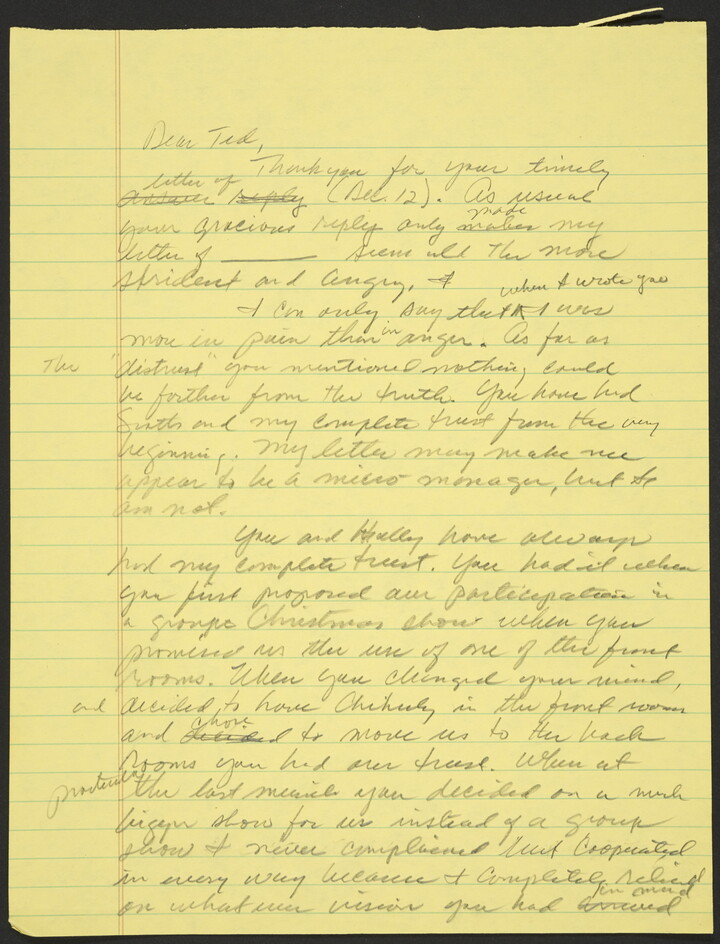 Dear Ted,
Thank you for your timely
letter of
answer reply (Dec. 12). As usual
your gracious reply only makes made my
letter of ______ seem all the more
strident and angry. I
I can only say that when I wrote you I was
more in pain than in anger. As far as
The "distrust" you mentioned nothing could
be further from the truth. You have had
and my complete trust from the very
beginning. My letter may make me
appear to be a micro manager, but I
am not.
You and have always
had my complete trust. You had it when
you first proposed our participation in
a group Christmas show when you
promised us the use of one of the front
rooms. When you changed your mind,
and decided to have Chihuly in the front room
and decided chose to move us to the back
rooms you had our trust. When at
practically the last minute you decided on a much
bigger show for us instead of a group
show I never complained but cooperated
in every way because I completely relied
on whatever vision you had in mind